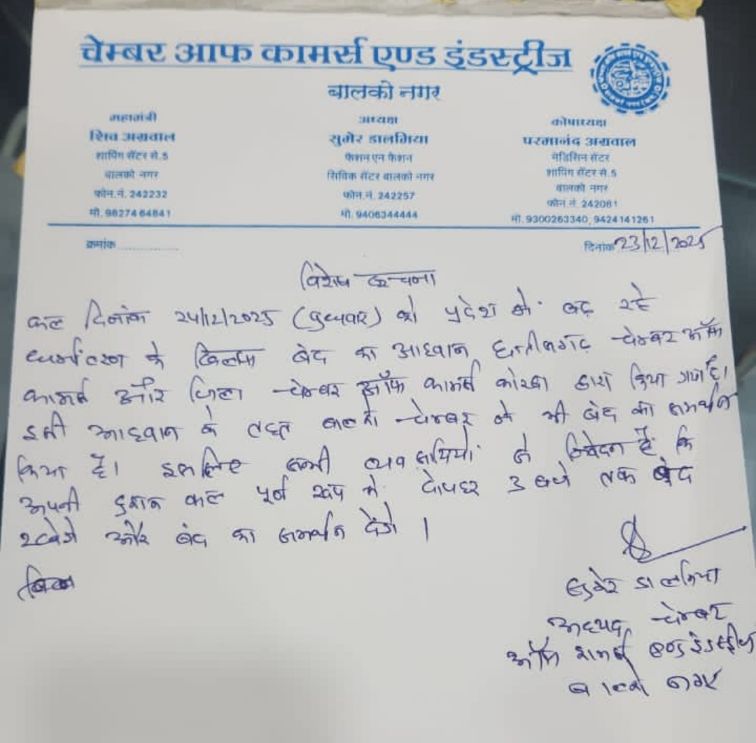 चेम्बर आफ कामर्स एण्ड इंडस्ट्रीज
बालको नगर
महामंत्री
शिव अग्रवाल
शापिंग सेंटर से.5
बालको नगर
फोन.नं. 242232
मो. 9827464841
अध्यक्ष
सुमेर डालमिया
फेशन एन फेशन
सिविक सेंटर बालको नगर
फोन.नं. 242257
मो. 9406344444
कोषाध्यक्ष
परमानंद अग्रवाल
मेडिसिन सेंटर
शापिंग सेंटर से.5
बालको नगर
फोन नं. 242081
मो. 9300263340, 9424141261
क्रमांक
दिनांक 23/12/2025
विशेष सूचना
कल दिनांक 24/12/2025 (बुधवार) को प्रदेश में बढ़ रहे
धर्मांतरण के खिलाफ बंद का आह्वान छत्तीसगढ़ चेम्बर ऑफ
कामर्स और जिला चेम्बर ऑफ कामर्स कोरबा द्वारा किया गया है।
इसी आह्वान के तहत बालको चेम्बर ने भी बंद का समर्थन
किया है। इसलिए सभी व्यवसायियों से निवेदन है कि
अपनी दुकान कल पूर्ण रूप से दोपहर 3 बजे तक बंद
रखेंगे और बंद का समर्थन देंगे।
सुमेर डालमिया
अध्यक्ष चेम्बर
ऑफ कामर्स एण्ड इंडस्ट्रीज
बालको नगर